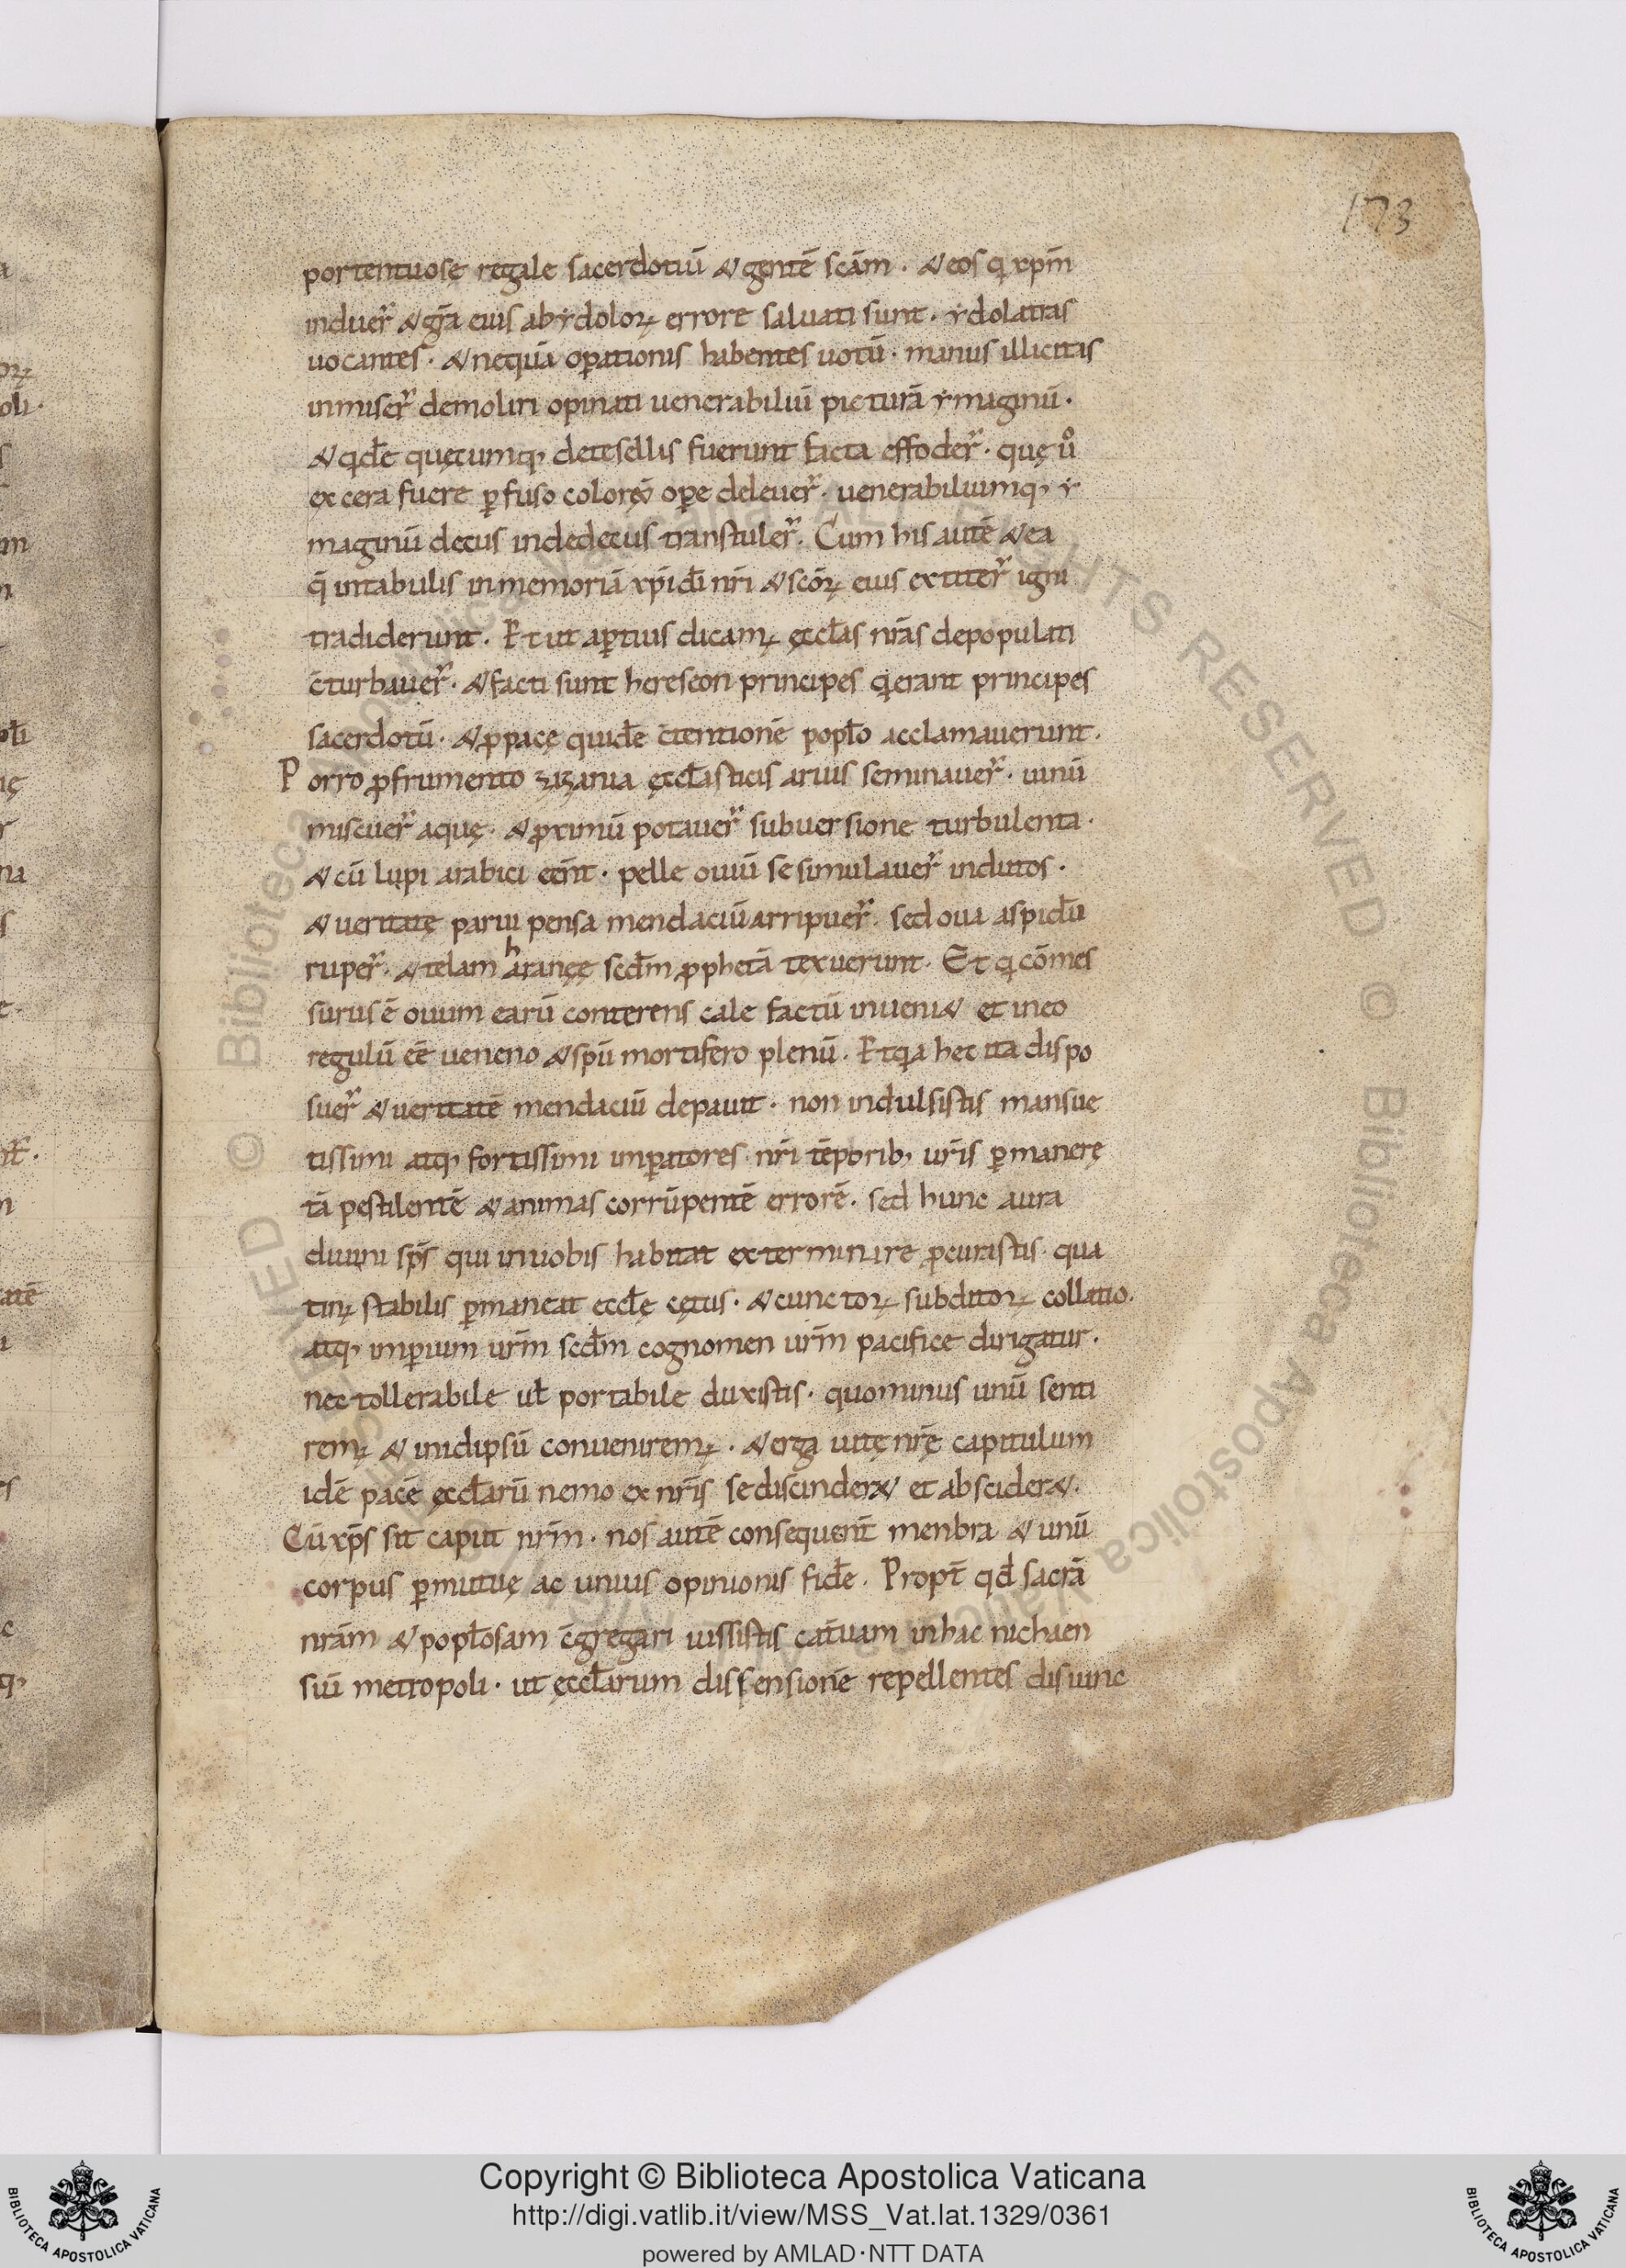 173
portentuosę regale sacerdotiū & gentē scām . & eos qi xpm̄
induer̄ & grā eius ab ydoloꝝ errore saluati sunt . ydolatras
uocantes . & nequā oꝑationis habentes uotū . manus illicitas
inmiser̄ demoliri opinati uenerabiliū picturā ymaginū .
& qidē quęcumq, detesellis fuerunt facta effoder̄ . quę uº
ex cera fuere ꝑfuso colorę oꝑe deleuer̄ . uenerabiliumq, y
maginū decus indedecus transtuler̄ . Cum his autē & ea
q̄ intabulis inmemoriā xpi dī nr̄i & scōꝝ eius extiter̄ igni
tradiderunt . Et ut aꝑtius dicamꝫ ęcclas nr̄as depopulati
c̄turbauer̄ . & facti sunt hereseon principes qi erant principes
sacerdotū . & ꝓpacę quidē c̄tentionē poplo acclamauerunt .
Porro ꝓfrumento zizania ęcclasticis aruis seminauer̄ . uinū
miscuer̄ aquę . & ꝓximū potauer̄ subuersione turbulenta .
& cū lupi arabici eēnt . pelle ouiū se simulauer̄ indutos .
& ueritatę parui pensa mendaciū arripuer̄ . sed oua aspidū
ruper̄ . & telam haranęę scdm̄ ꝓphetā texuerunt . Et qi cōmes
surus ē ouum earū conterens cale factū inueni& et ineo
regulū eē ueneno & spū mortifero plenū . Et qia hec ita dispo
suer̄ & ueritatē mendaciū depauit . non indulsistis mansue
tissimi atq, fortissimi imꝑatores nr̄i tēporib, ur̄is ꝑmanerę
tā pestilentē & animas corrūpentē errorē . sed hunc aura
diuini sp̄s qui inuobis habitat exterminare ꝓcurastis qua
tinꝫ stabilis ꝑmaneat eccłę cętus . & cunctoꝝ subditoꝝ collatio .
atq, imꝑium ur̄m scdm̄ cognomen ur̄m pacifice dirigatur .
nec tollerabile ul̄ portabile duxistis . quominus unū senti
remꝫ & inidipsū conueniremꝫ . & erga uitę nr̄ę capitulum
idē pacē ęcclarū nemo ex nr̄is se discinder& et abscider& .
Cū xp̄s sit caput nr̄m . nos autē consequent̄ menbra & unū
corpus ꝑmutuę ac unius opinionis fidē . Propt̄ qd̄ sacrā
nr̄am & poplosam c̄gregari iussistis cat̄uam inhac nichaen
siū metropoli . ut ęcclarum dissensionē repellentes disiunc
Copyright © Biblioteca Apostolica Vaticana
http://digi.vatlib.it/view/MSS_Vat.lat.1329/0361
powered by AMLAD·NTT DATA